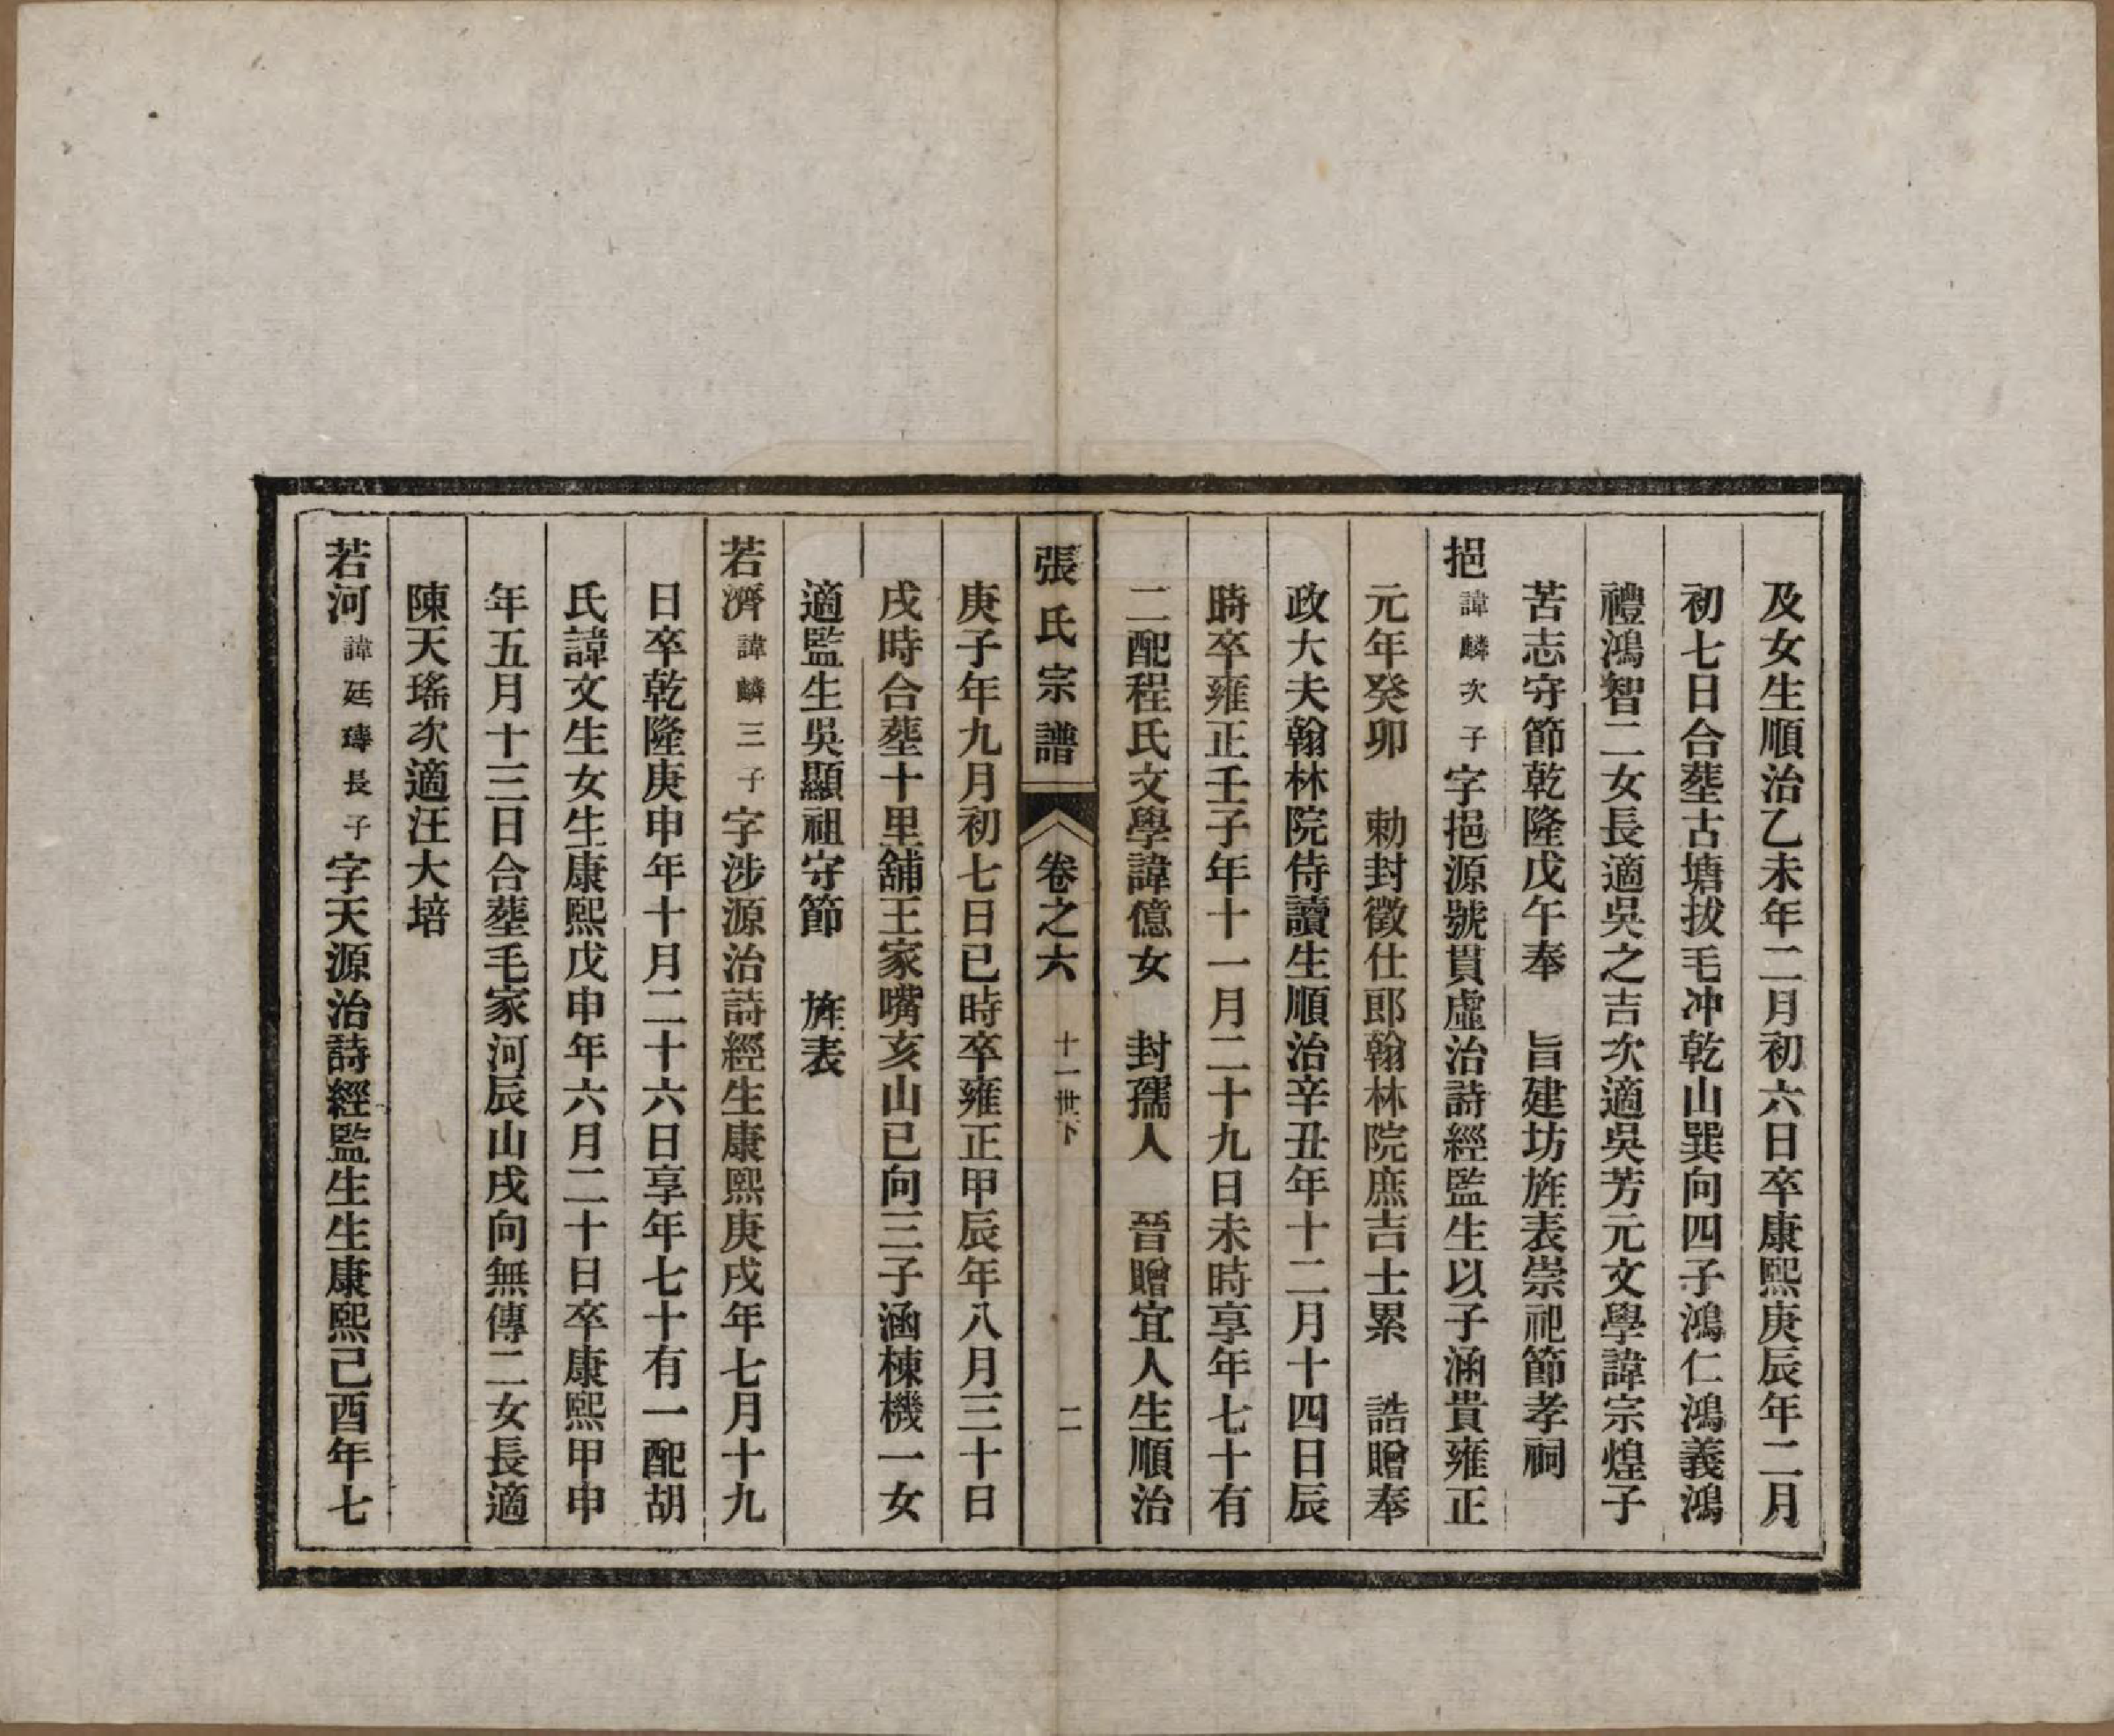 及女生順治乙未年二月初六日卒康熙庚辰年二月
初七日合塟古塘拔毛冲乾山巽向四子鴻仁鴻義鴻
禮鴻智二女長適吳之吉次適吳芳元文學諱宗煌子
苦志守節乾隆戊午奉　旨建坊旌表崇祀節孝祠
挹諱麟次子字挹源號貫虛治詩經監生以子涵貴雍正
元年癸卯　勅封徵仕郎翰林院庶吉士累　誥贈奉
政大夫翰林院侍讀生順治辛丑年十二月十四日辰
時卒雍正壬子年十一月二十九日未時享年七十有
二配程氏文學諱億女　封孺人　晉贈宜人生順治
張氏宗譜　卷之六　十一世下　二
庚子年九月初七日巳時卒雍正甲辰年八月三十日
戌時合塟十里舖王家嘴亥山巳向三子涵棟機一女
適監生吳顯祖守節　旌表
若濟諱麟三子字涉源治詩經生康熙庚戌年七月十九
日卒乾隆庚申年十月二十六日享年七十有一配胡
氏諱文生女生康熙戊申年六月二十日卒康熙甲申
年五月十三日合塟毛家河辰山戌向無傳二女長適
陳天瑤次適汪大培
若河諱廷瑃長子字天源治詩經監生生康熙己酉年七